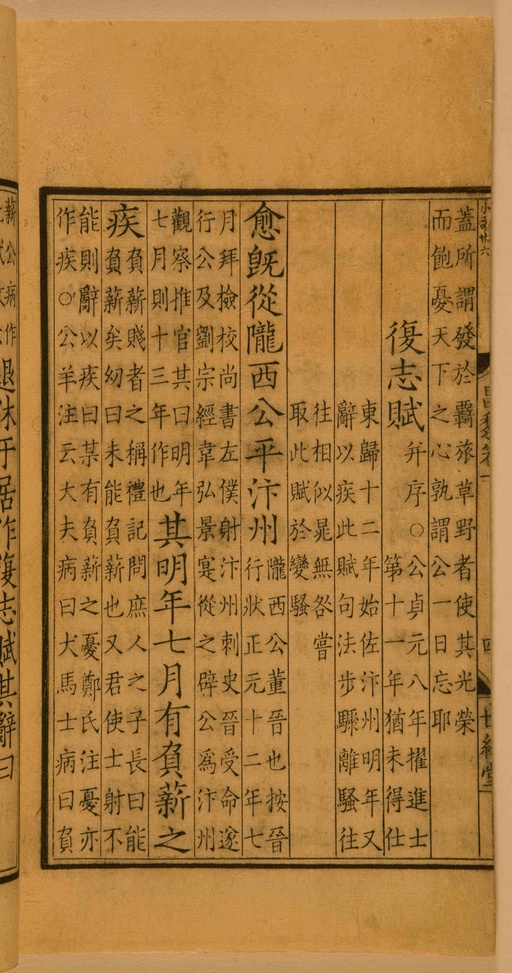 世綵堂
蓋所謂發於羇旅草野者使其光榮
而飽憂天下之心孰謂公一日忘耶
復志賦
并序○公貞元八年擢進士
第十一年猶未得仕
東歸十二年始佐汴州明年又
辭以疾此賦句法步驟離騷往
往相似晁無咎嘗
取此賦於變騷
愈旣從隴西公平汴州
隴西公董晉也按晉
行狀正元十二年七
月拜檢校尚書左僕射汴州刺史晉受命遂
行公及劉宗經韋弘景寔從之辟公爲汴州
觀察推官其曰明年
七月則十三年作也
其明年七月有負薪之
疾
負薪賤者之稱禮記問庶人之子長曰能
負薪矣幼曰未能負薪也又君使士射不
能則辭以疾曰某有負薪之憂鄭氏注憂亦
作疾○公羊注云大夫病曰犬馬士病曰負
薪公病作
退休于居作復志賦其辭曰